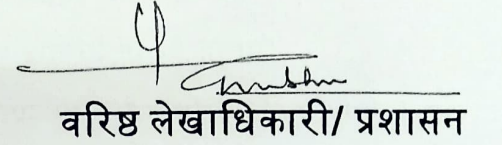 वरिष्ठ लेखाधिकारी/ प्रशासन